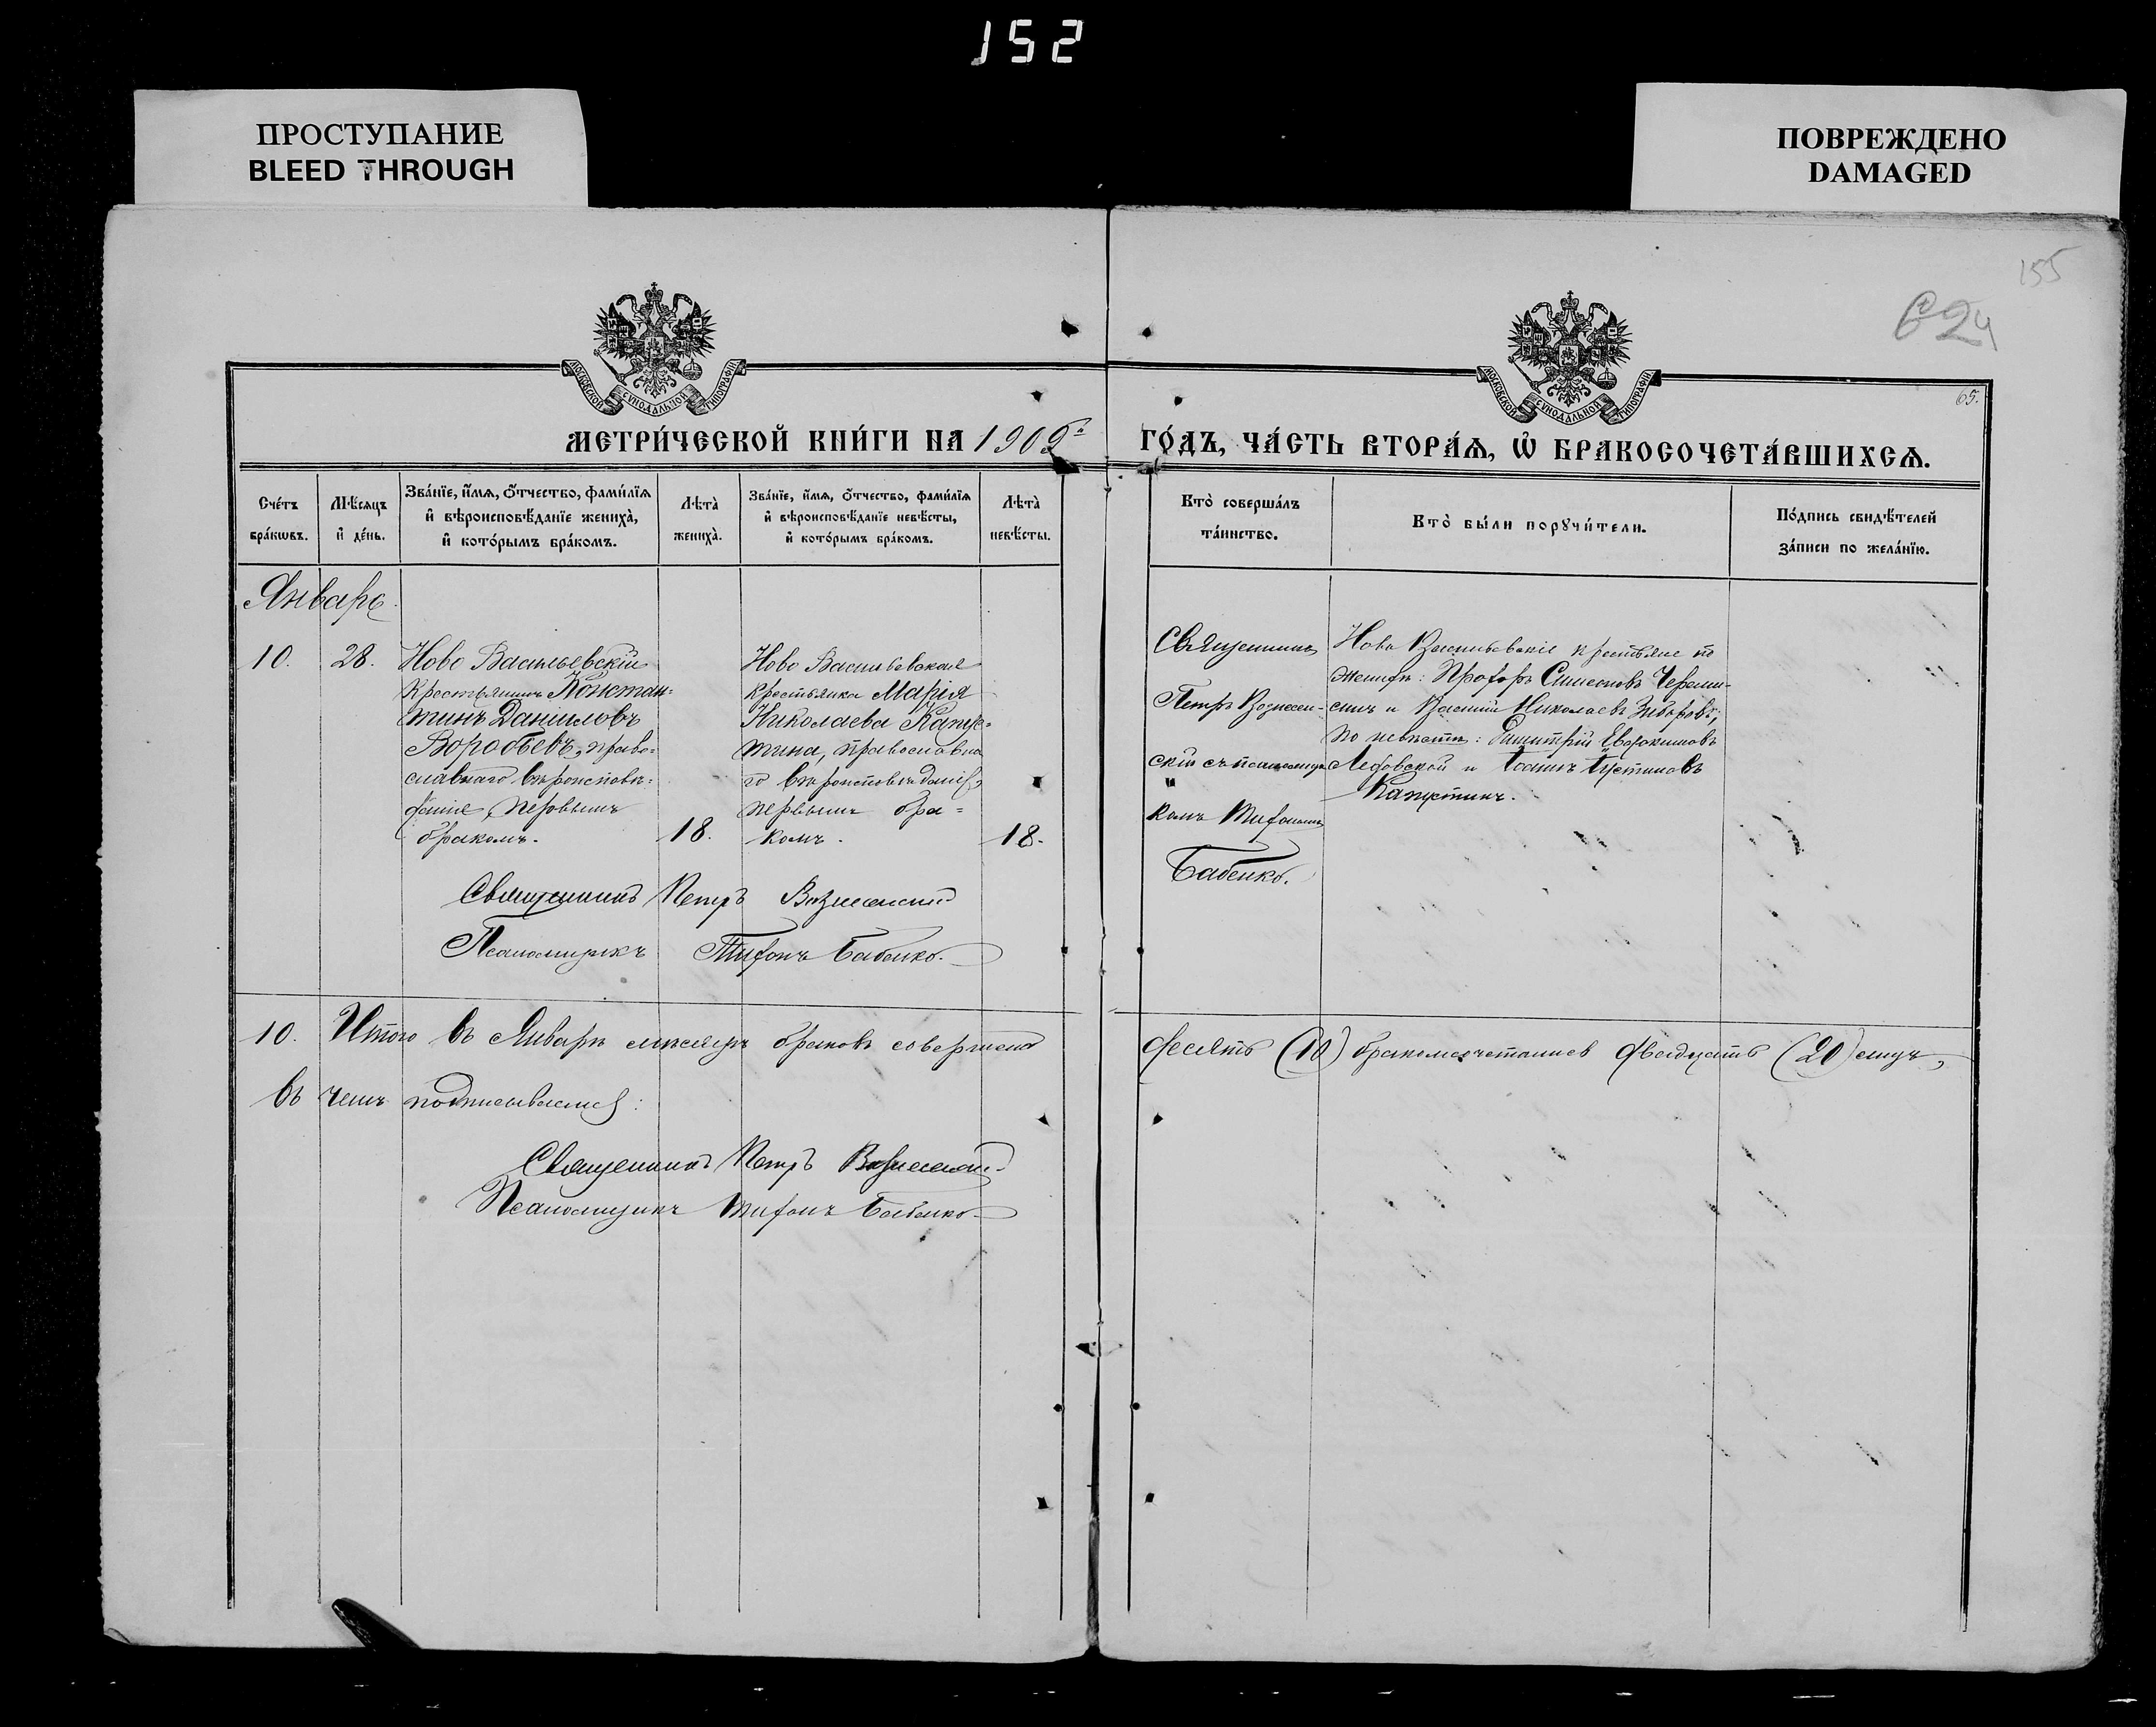 152
ПРОСТУПАНИЕ
BLEED THROUGH
ПОВРЕЖДЕНО
DAMAGED
155
65.
МОСКОВСКОЙ СѴНОДАЛЬНОЙ ТИПОГРАФІИ
МОСКОВСКОЙ СѴНОДАЛЬНОЙ ТИПОГРАФІИ
МЕТРИ́ЧЕСКОЙ КНИ́ГИ НА 190
ГО́ДЪ, ЧА́СТЬ ВТОРА́Ѧ, Ѡ҆ БРАКОСОЧЕТА́ВШИХСѦ.
Сче́тъ бра́кѡвъ.
Мѣ́сяцъ и҆ де́нь.
Зва́нїе, и҆́мѧ, ѻ҆́тчество, фами́лїѧ
и҆ вѣроисповѣ́данїе жениха̀,
и҆ кото́рымъ бра́комъ.
Лѣта̀ жениха̀.
Зва́нїе, и҆́мѧ, ѻ҆́тчество, фами́лїѧ
и҆ вѣроисповѣ́данїе невѣ́сты,
и҆ кото́рымъ бра́комъ.
Лѣта̀ невѣ́сты.
Кто̀ соверша́лъ та́инство.
Кто̀ бы́ли порꙋчи́тели.
По́дпись свидѣ́телей за́писи по жела́нїю.
Январь.
10.
28.
Ново Васильевскій
крестьянинъ Констан=
тинъ Даниловъ
Воробьевъ, право=
славнаго вѣроисповѣ=
данія, первымъ
бракомъ.
18.
Ново Васильевская
крестьянка Марія
Николаева Капус=
тина, православна
го вѣроисповѣданія,
первымъ бра=
комъ.
18.
Священникъ
Петръ Вознесен-
скій съ псаломщи
комъ Тифономъ
Бабенко.
Ново Васильевскіе крестьяне по
женихѣ: Прохоръ Симеоновъ
и Василій Николаевъ
по невѣстѣ: Димитрій Евдокимовъ
и Іоаннъ Іустиновъ
Капустинъ.
Священникъ Петръ Вознесенскій
Псаломщикъ Тифонъ Бабенко.
10. Итого въ Январѣ мѣсяцѣ браковъ совершено
десять (10) бракосочетаниевъ двадцать (20) лицъ,
въ чемъ подписываемся:
Священникъ Петръ Вознесенскій
Псаломщикъ Тифонъ Бабенко